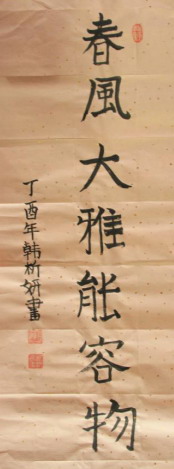 春風大雅能容物
丁酉年韩析妍書